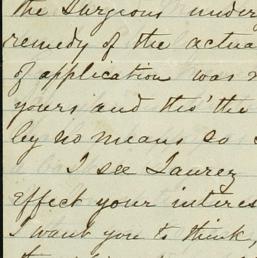 the Surgeons under
remedy of the actua
of application was
yours and tho' the
by no means so
I see
effect your interes
I want you to think,